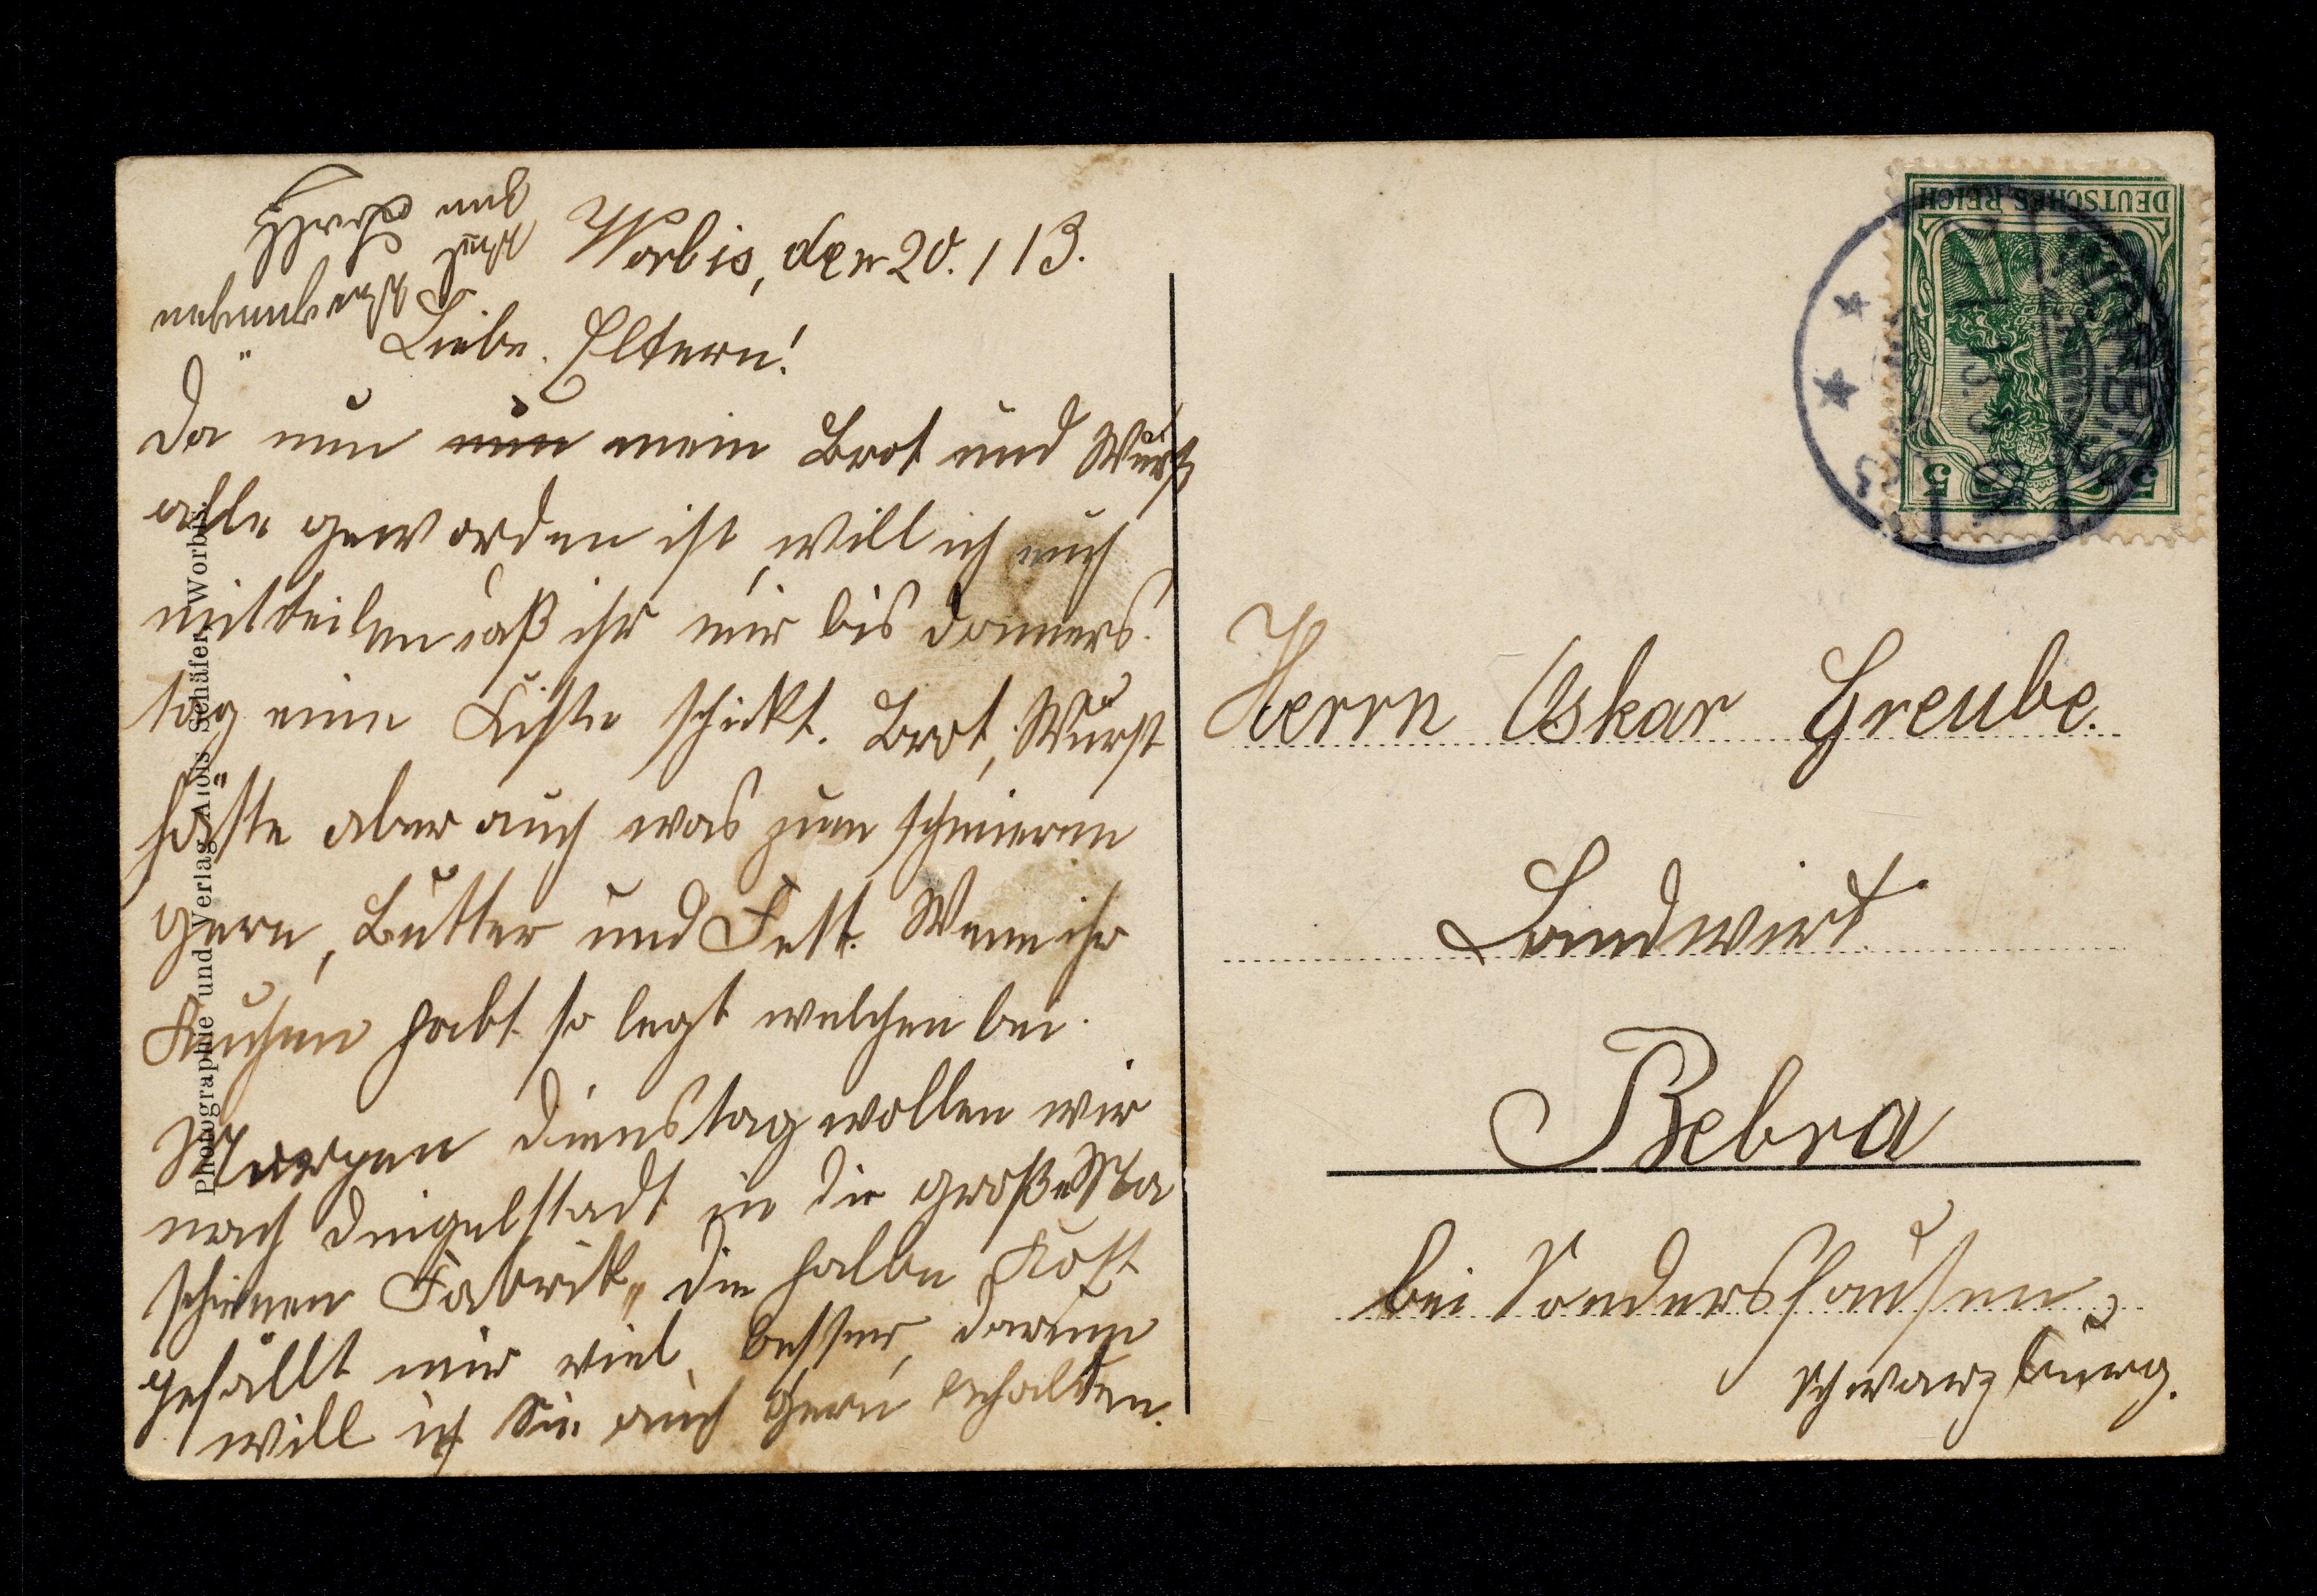 Worbis, den 20./13.
Liebe Eltern!
Da nun nun mein Brot und Wurst
alle geworden ist, will ich euch
mitteilen daß ihr mir bis Donners-
tag eine Kiste schickt. Brot, Wurst
hätte aber auch was zum schmieren
gern, Butter und Fett. Wenn ihr
Kuchen habt so legt welchen bei.
Morgen Dienstag wollen wir
nach Dingelstadt in die große Ma
schienen Fabrik, die halbe Kost
gefällt mir viel besser, darum
will ich Sie auch gern behalten.
Photographie und Verlag Alois Schäfer, Worbis.
DEUTSCHES REICH
5 5
WORBIS
Herrn Oskar Greube.
Landwirt.
Bebra
bei Sondershausen
Schwarzburg.